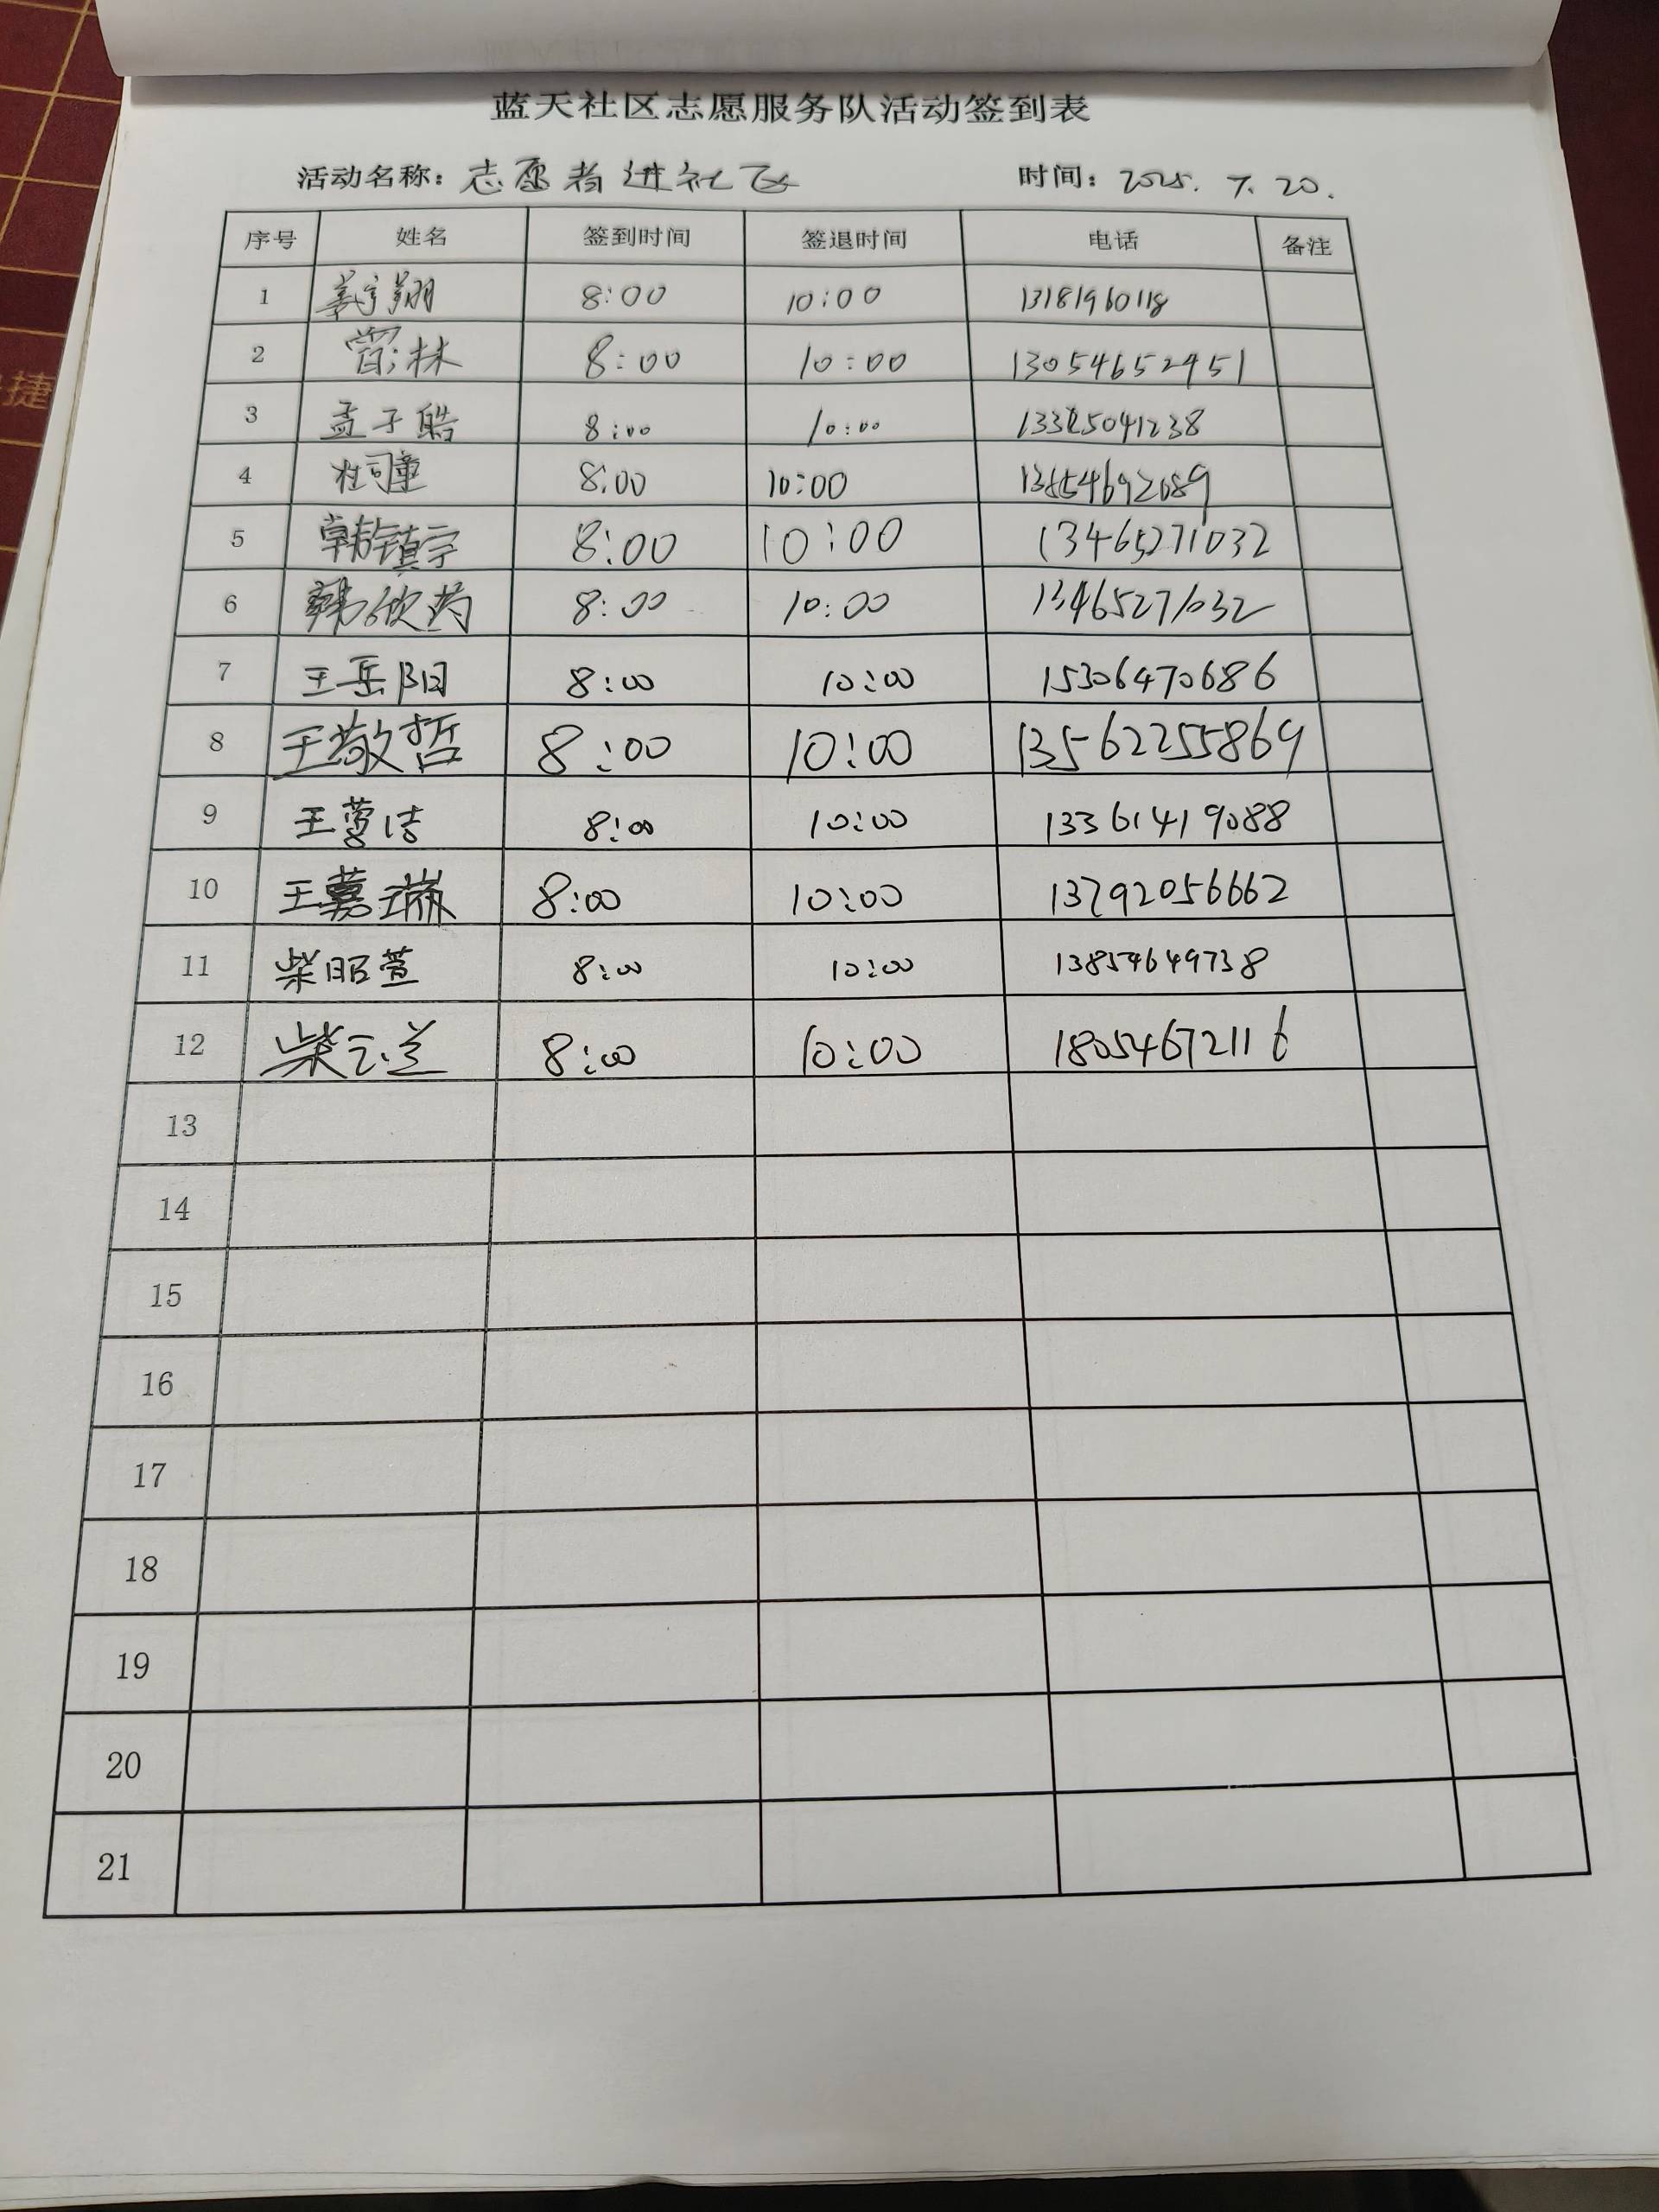 蓝天社区志愿服务队活动签到表
活动名称：志愿者进社区 时间：2025.7.20.
序号 姓名 签到时间 签退时间 电话 备注
1 姜宇翔 8:00 10:00 1318196018
2 林 8:00 10:00 13054652951
3 孟子皓 8:00 10:00
4 杜司童 8:00 10:00 13854692089
5 韩镇宇 8:00 10:00 13465271032
6 韩欣芮 8:00 10:00 13465271032
7 王岳阳 8:00 10:00 15306470686
8 王敬哲 8:00 10:00 13562255869
9 王 洁 8:00 10:00 13361419088
10 王嘉瑞 8:00 10:00 13792056662
11 柴昭萱 8:00 10:00 13854649738
12 柴云兰 8:00 10:00 18054672116
13
14
15
16
17
18
19
20
21
捷